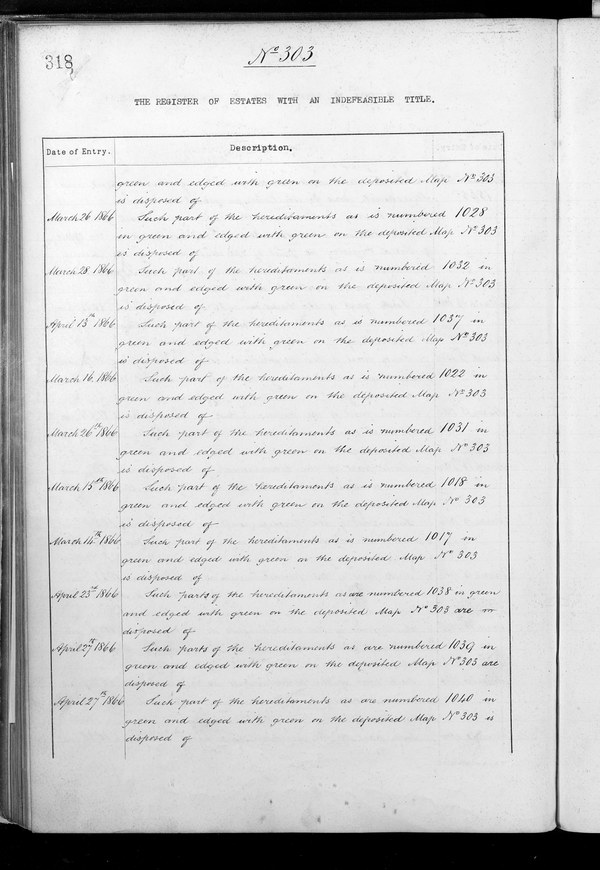 318
No 303
THE REGISTER OF ESTATES WITH AN INDEFEASIBLE TITLE.
Date of Entry. Description.
green and edged with green on the deposited Map No 303
is disposed of
March 26 1866 Such part of the hereditaments as is numbered 1028
in green and edged with green on the deposited Map No 303
is disposed of
March 28 1866 Such part of the hereditaments as is numbered 1032 in
green and edged with green on the deposited Map No 303
is disposed of
April 13th 1866 Such part of the hereditaments as is numbered 1037 in
green and edged with green on the deposited Map No 303
is disposed of
March 16. 1866 Such part of the hereditaments as is numbered 1022 in
green and edged with green on the deposited Map No 303
is disposed of
March 26th 1866 Such part of the hereditaments as is numbered 1031 in
green and edged with green on the deposited Map No 303
is disposed of
March 15th 1866 Such part of the hereditaments as is numbered 1018 in
green and edged with green on the deposited Map No 303
is disposed of
March 14th 1866 Such part of the hereditaments as is numbered 1017 in
green and edged with green on the deposited Map No 303
is disposed of
April 23rd 1866 Such parts of the hereditaments as are numbered 1038 in green
and edged with green on the deposited Map No 303 are
disposed of
April 27th 1866 Such parts of the hereditaments as are numbered 1039 in
green and edged with green on the deposited Map No 303 are
disposed of
April 27th 1866 Such part of the hereditaments as are numbered 1040 in
green and edged with green on the deposited Map No 303 is
disposed of